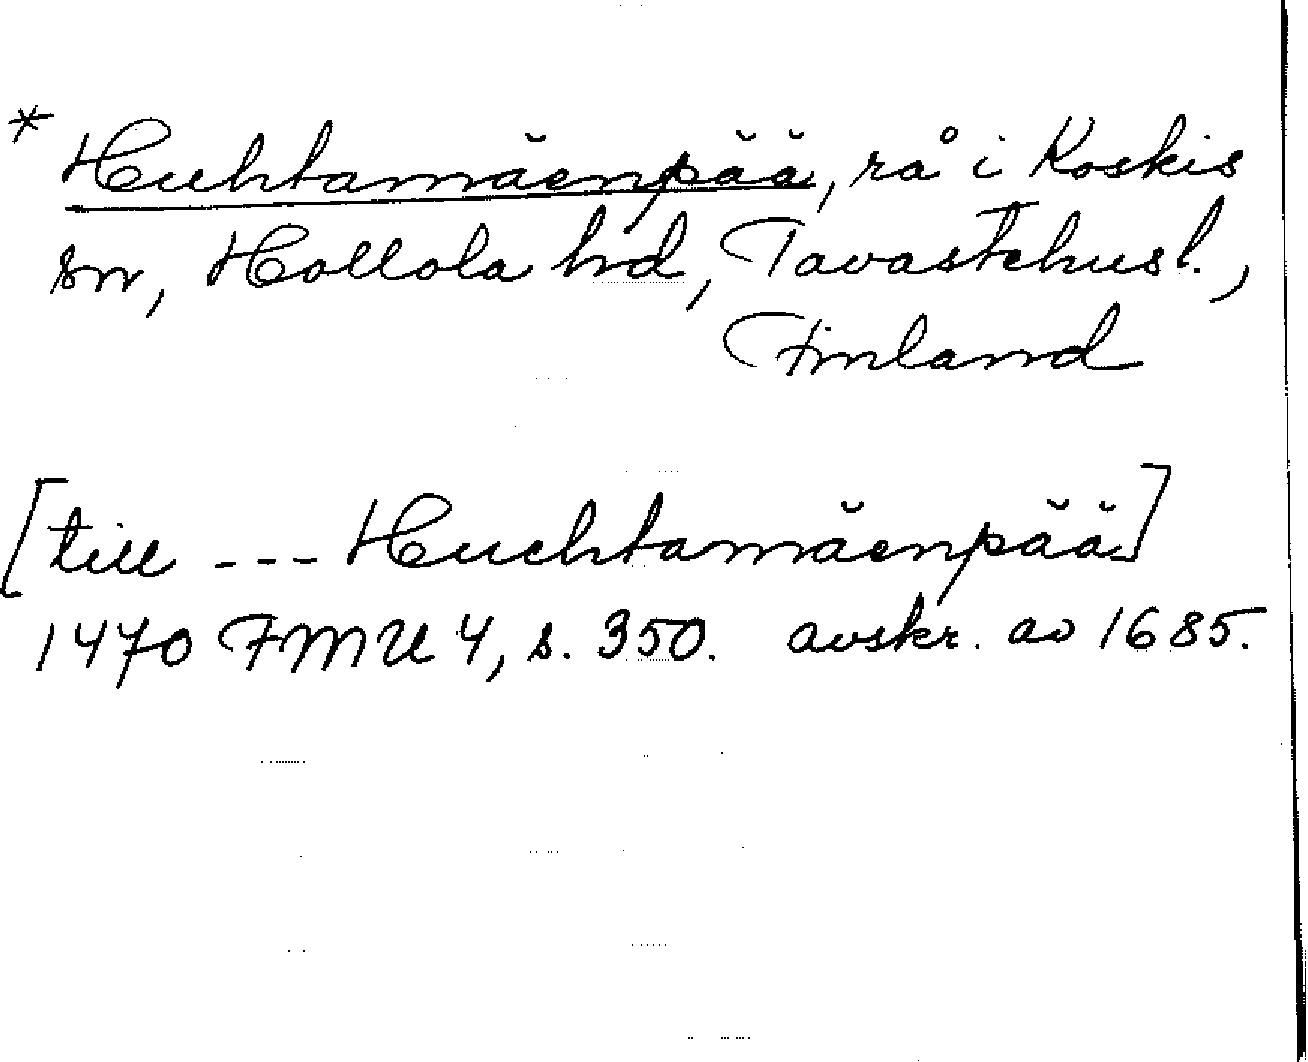 * Huhtamäenpää, rå i Koskis
sn, Hollola hd, Tavastehusl.,
Finland
[till --- Huchtamäenpää]
1470 FMU 4, s. 350. avskr. av 1685.